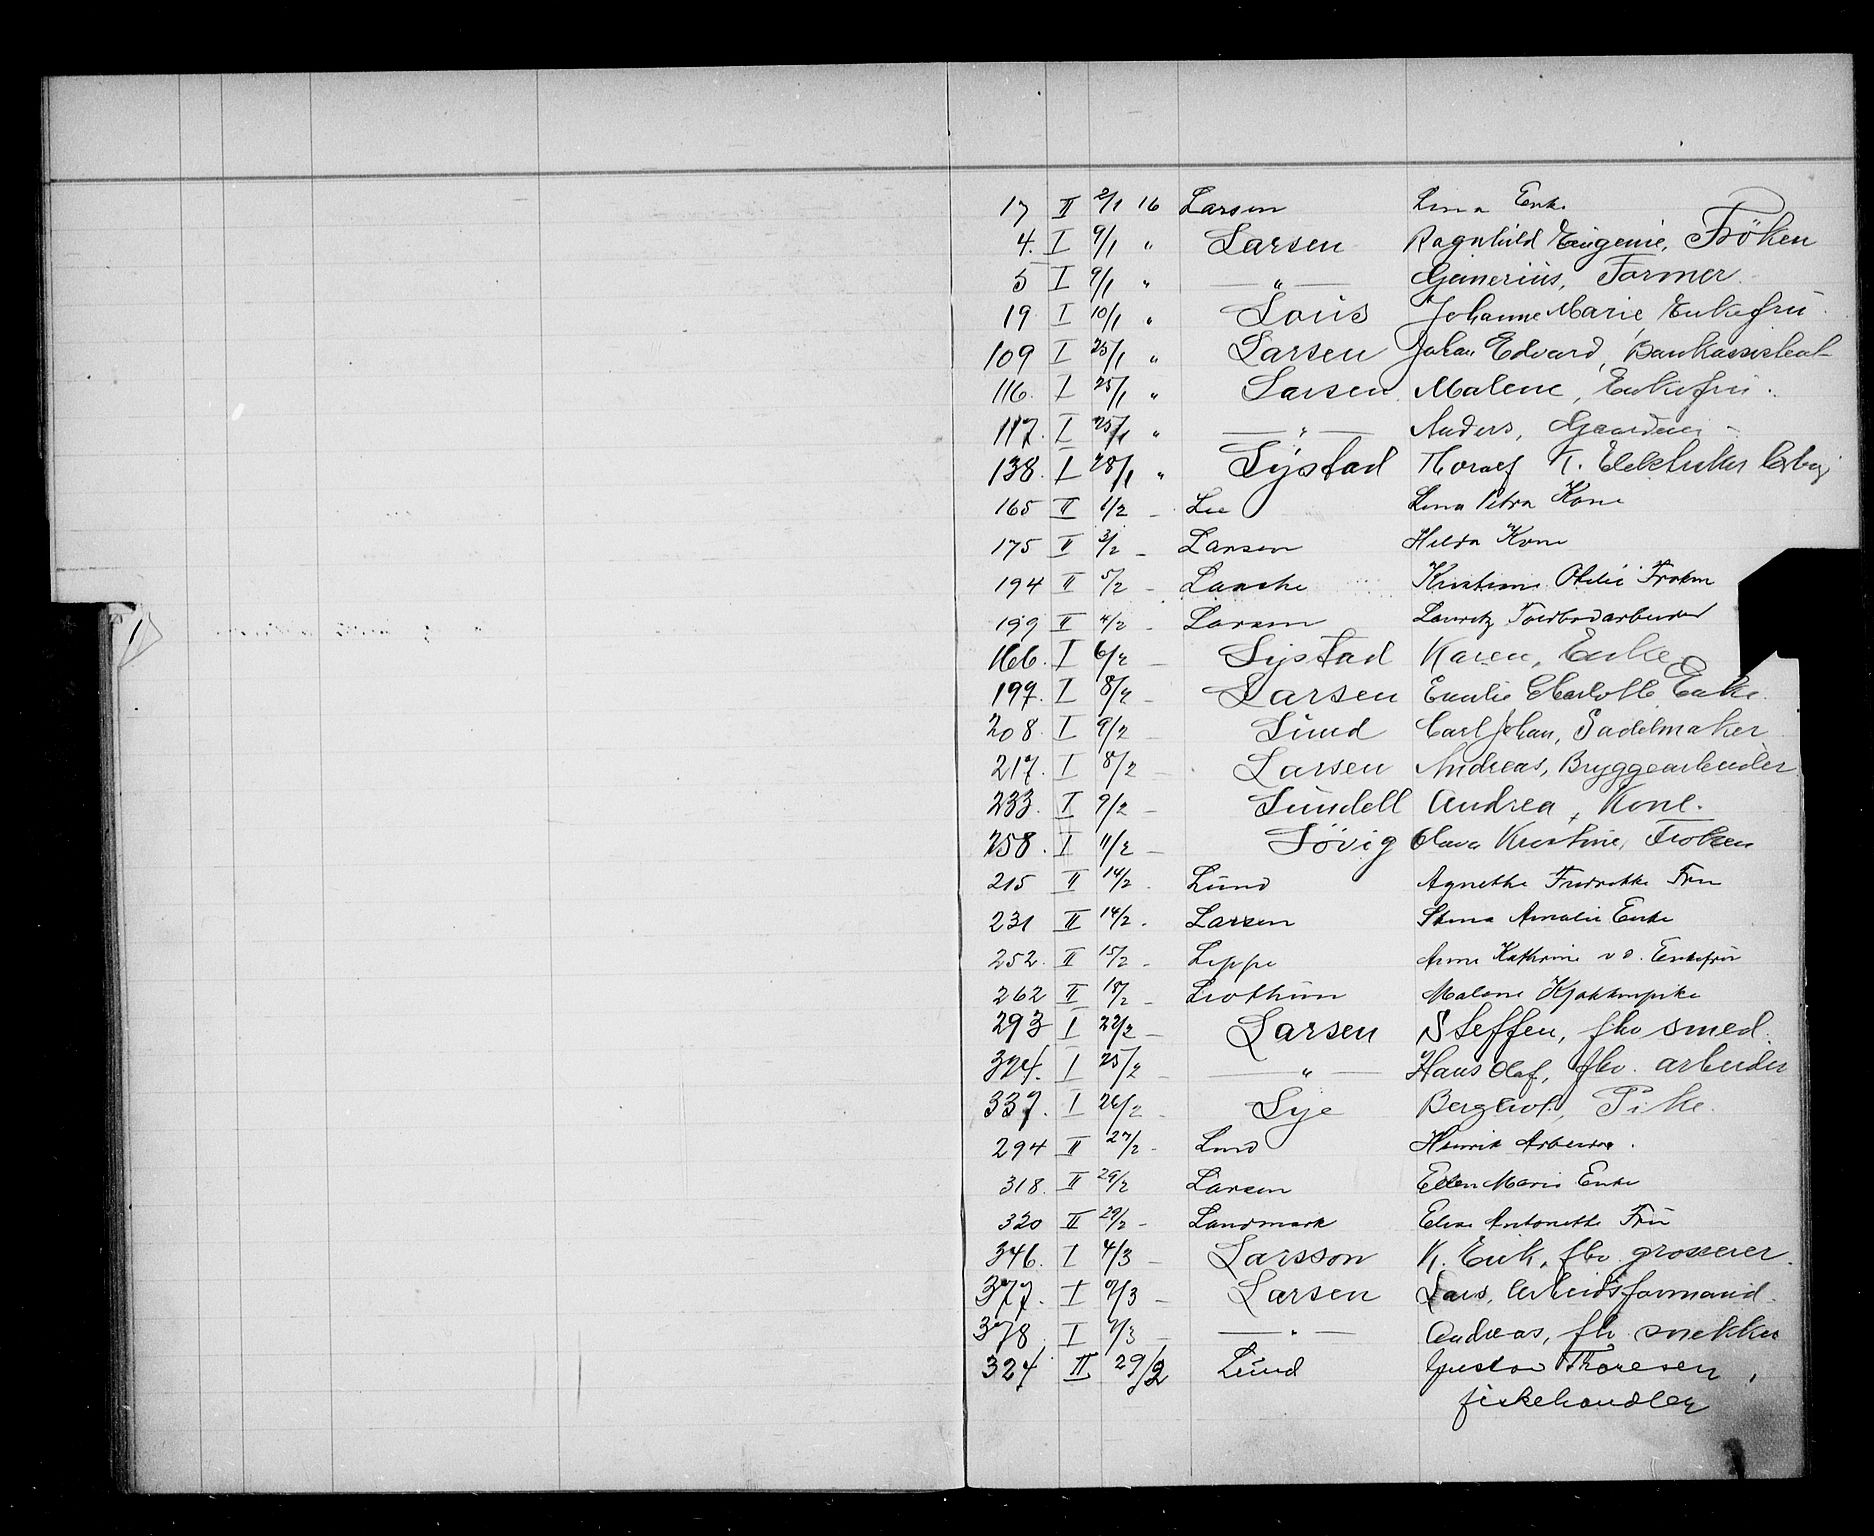 17 II 2/1 16 Larsen Lina Enke
4. I 9/1 " Larsen Ragnhild Eugenie, Fröken
5 I 9/1 " — " — Gunerius, Former
19 I 10/1 " Louis Johanne Marie Enkefru.
109 I 25/1 " Larsen Johan Edvard, Bankassistent
116. I 25/1 " Larsen Malene, Enkefru.
117. I 25/1 " — " — Anders,
138. I 28/1 " Lystad Thoralf K. Elektriker
165 II 1/2 - Lie Lina Petra Kone
175 II 3/2 - Larsen Hilda Kone
194 II 5/2 - Laache Kristiane Otelie Frøken
199 II 4/2 - Larsen Lauritz Toldbodarbeider
166. I 6/2 - Lystad Karen, Enke
197. I 8/2 - Larsen Emilie Charlotte Enke.
208. I 9/2 Lund Carl Johan, Sadelmaker
217. I 8/2 - Larsen Andreas, Bryggearbeider
233. I 9/2 - Lundell Andrea, Kone.
258. I 11/2 - Løvig Olava Kristine, Frøken
215 II 14/2. Lund Agnethe Fredrikke Fru
231 II 14/2. Larsen Stina Amalie Enke
252. II 15/2 - Lippe Anne Kathrine v d. Enkefru
262 II 18/2 - Malene Kjøkkenpike
293 I 22/2 - Larsen Steffen, fhv smed.
324. I 25/2 - — " — Hans Olaf, fhv. arbeider
337. I 26/2 - Lye Bergliot, Pike.
294 II 27/2 - Lund Henrik Arbeider.
318. II 29/2 Larsen Ellen Marie Enke
320 II 29/2 - Landmark Elise Antonette Fru
346. I 4/3 - Larsson K. Erik, fhv grosserer.
377. I 9/3 - Larsen Lars, Arbeidsformand.
378 I 7/3 - — " — Andreas, fhv snekker
324 II 29/2 Lund Gustav Thoresen,
fiskehandler